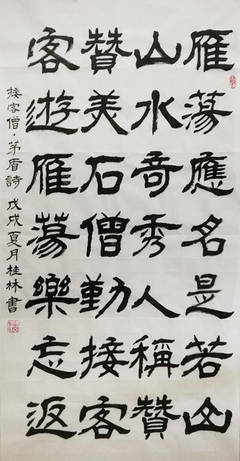 雁蕩應名是若山
山水奇秀人稱贊
贊美石僧勤接客
客遊雁蕩樂忘返
接客僧·茅盾詩 戊戌夏月桂林書